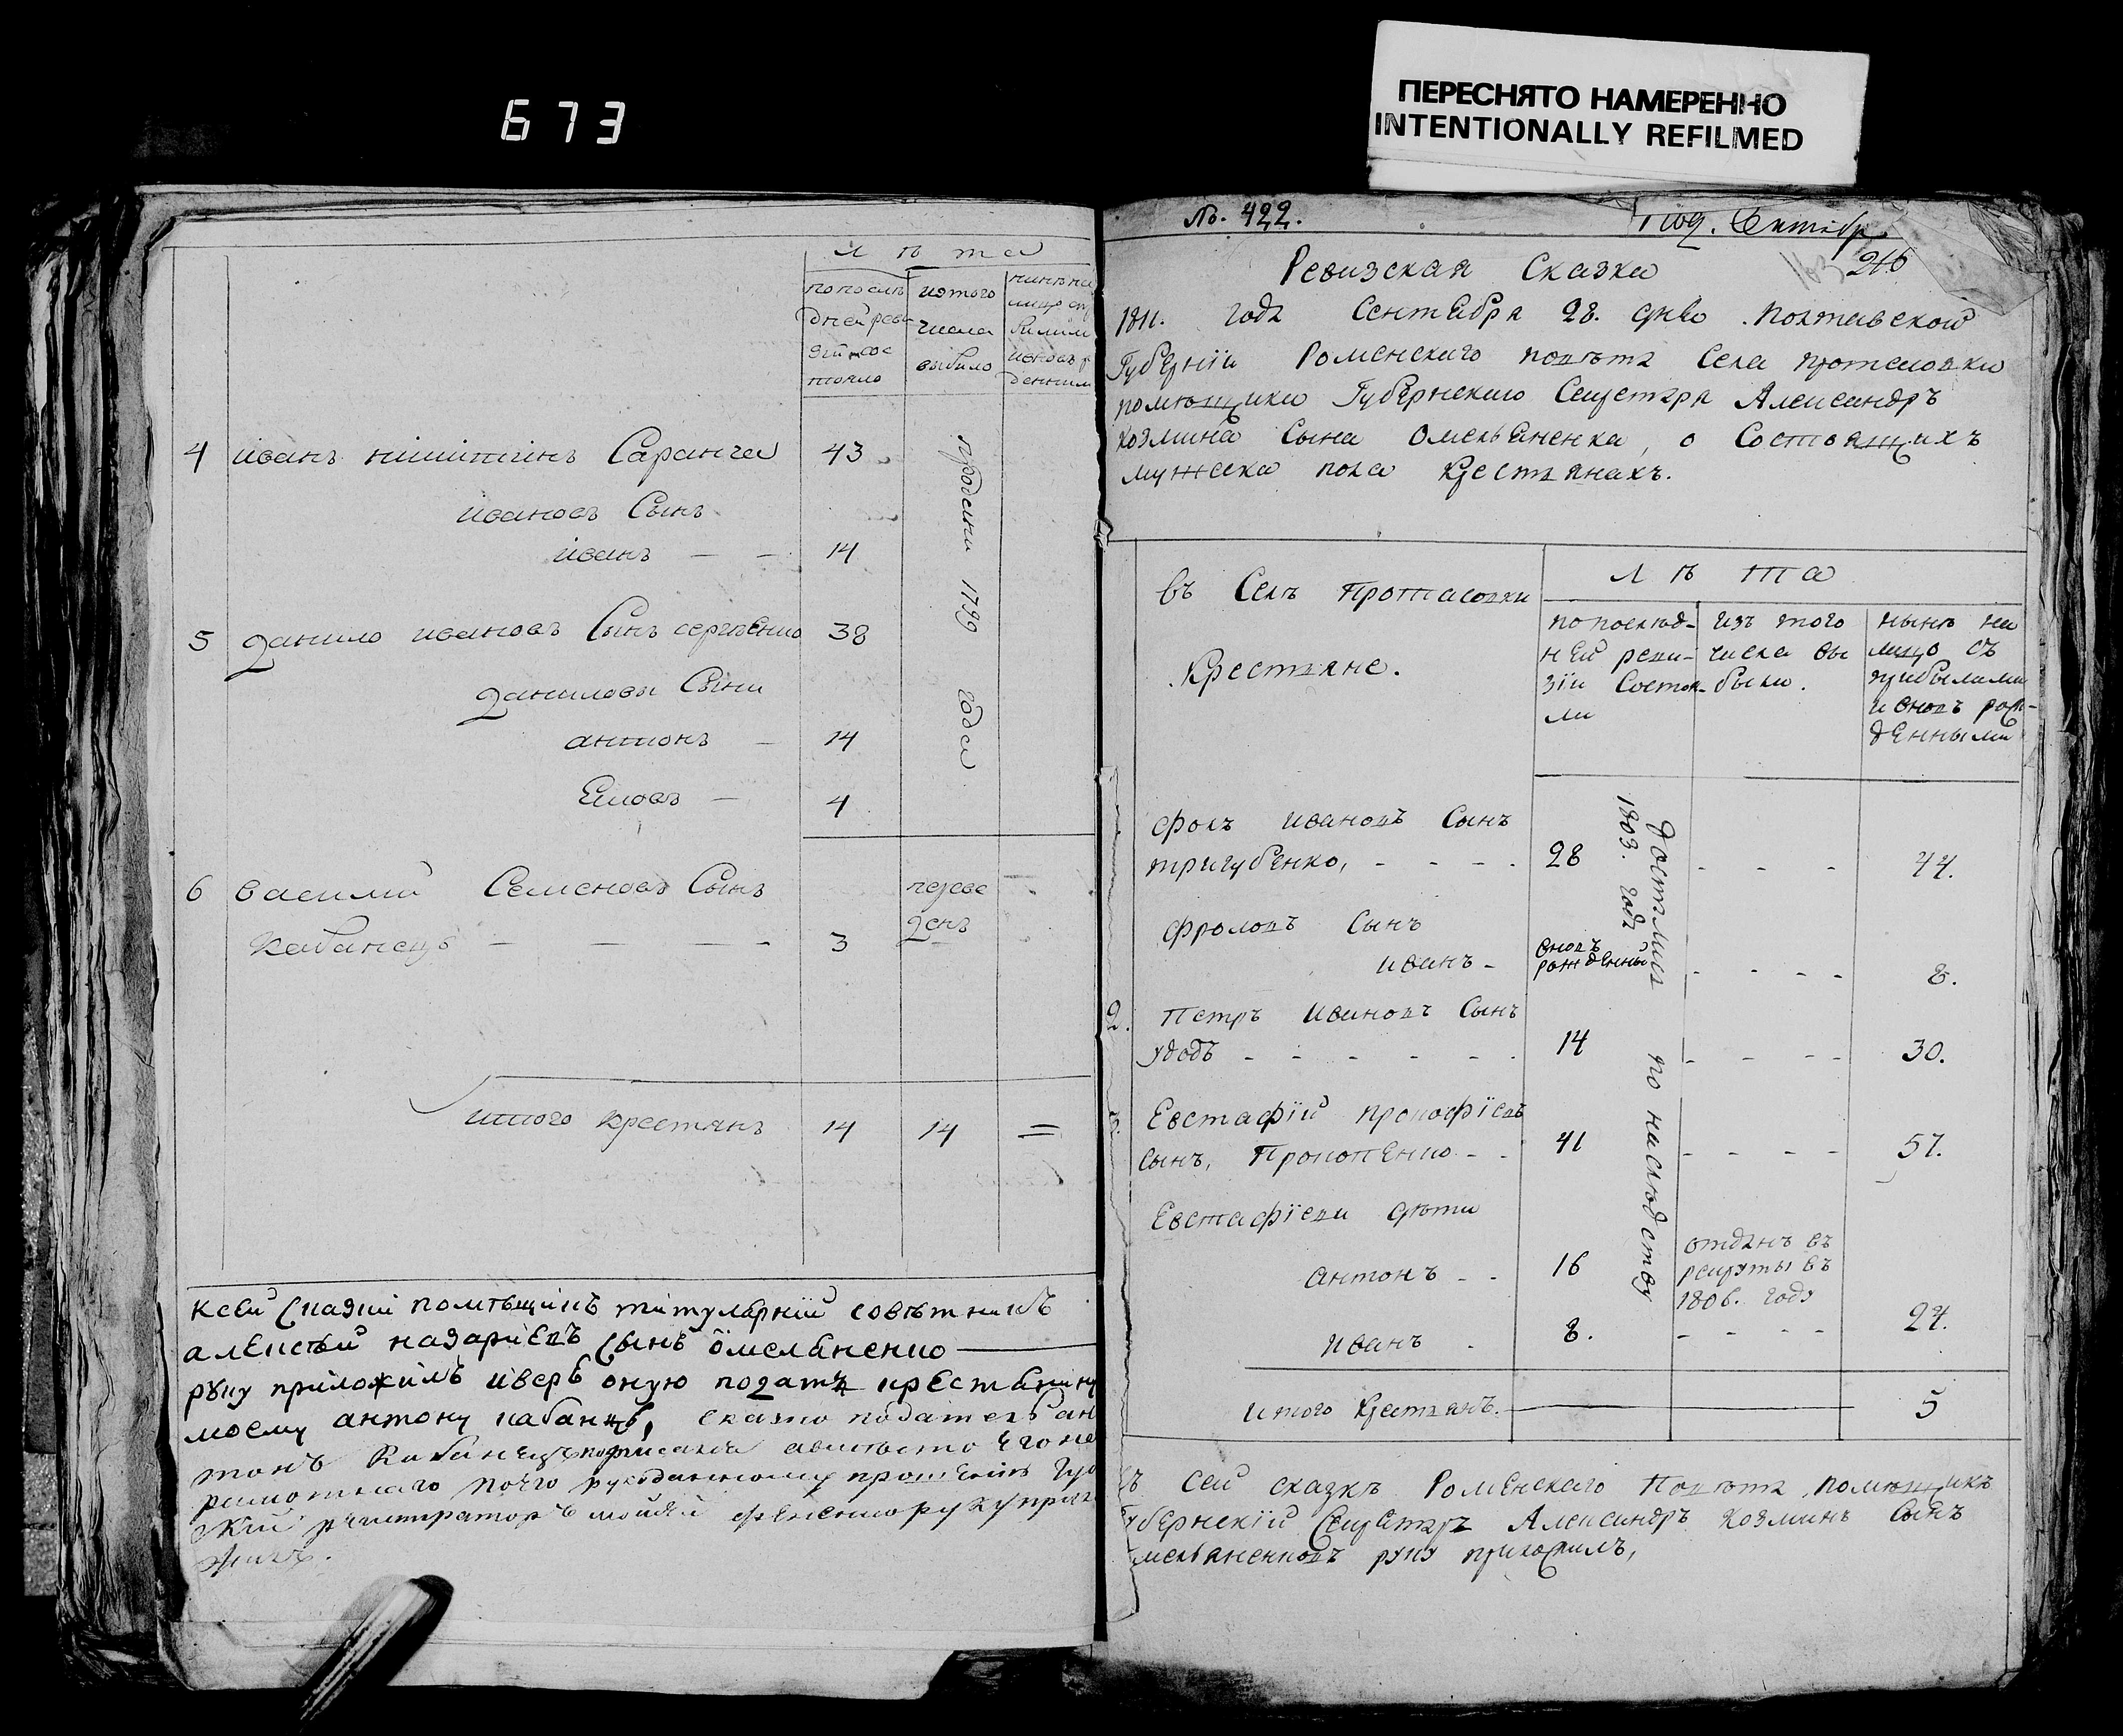 673
ПЕРЕСНЯТО НАМЕРЕННО
INTENTIONALLY REFILMED
лѣта
по послѣ
дней реви
зіи сос
тояло
изтого
числа
выбило
4 иванъ никитинъ Саранча 43
ивановъ Сынъ
иванъ — — 14
проданы 1799 года
5 Данило ивановъ Сынъ сергѣенко 38
Даниловы Сыни
антонъ — 14
Яковъ — 4
6 василій Семеновъ Сынъ
Кабанецъ — — — 3
переве
денъ
итого крестянъ 14 14 =
ксей сказки помѣщикъ титулярній совѣтникъ
алексѣй назаріевъ сынъ омельяненко
руку приложилъ ивѣрѣ оную подать крестьянину
моему антону кабанцу, сказко податель ан
тонъ Кабанецъ
руку прило
жилъ.
No. 422.
Под. Октябр
216
Ревизская Сказка
1811. года Сентебря 28. дня Полтавской
Губерніи Роменскаго повѣта Села протасовки
помѣщика Губернскаго Секретаря Александръ
козмина Сына омельяненка, о Состоящихъ
мужеска пола крестянахъ.
въ Селѣ Протасовки
Крестяне.
лѣта
по послѣд-
ней реви-
зіи Состоя-
ли
изъ того
числа вы
были.
нынѣ на
лицо съ
прибылыми
и вновъ рож-
денными
фролъ ивановъ Сынъ
тригубенко, - - - - 28 - - - 44.
достался по наслѣдству
1803. года
фроловъ Сынъ
иванъ - вновъ
рожденный - - - - 8.
2. Петръ ивановъ Сынъ
удодъ - - - - - - 14 - - - - 30.
3. Евстафій прокофіевъ
сынъ, Прокопенко - - 41 - - - - 57.
Евстафіеви дѣти
антонъ - - 16
отданъ въ
рекруты въ
1806. году
иванъ - 8. - - - - 24.
итого крестянъ. 5
ъ сей сказкѣ Роменскаго Повѣта помѣщикъ
губернскій Секретарь Александръ козминъ Сынъ
мельяненковъ руку приложилъ,